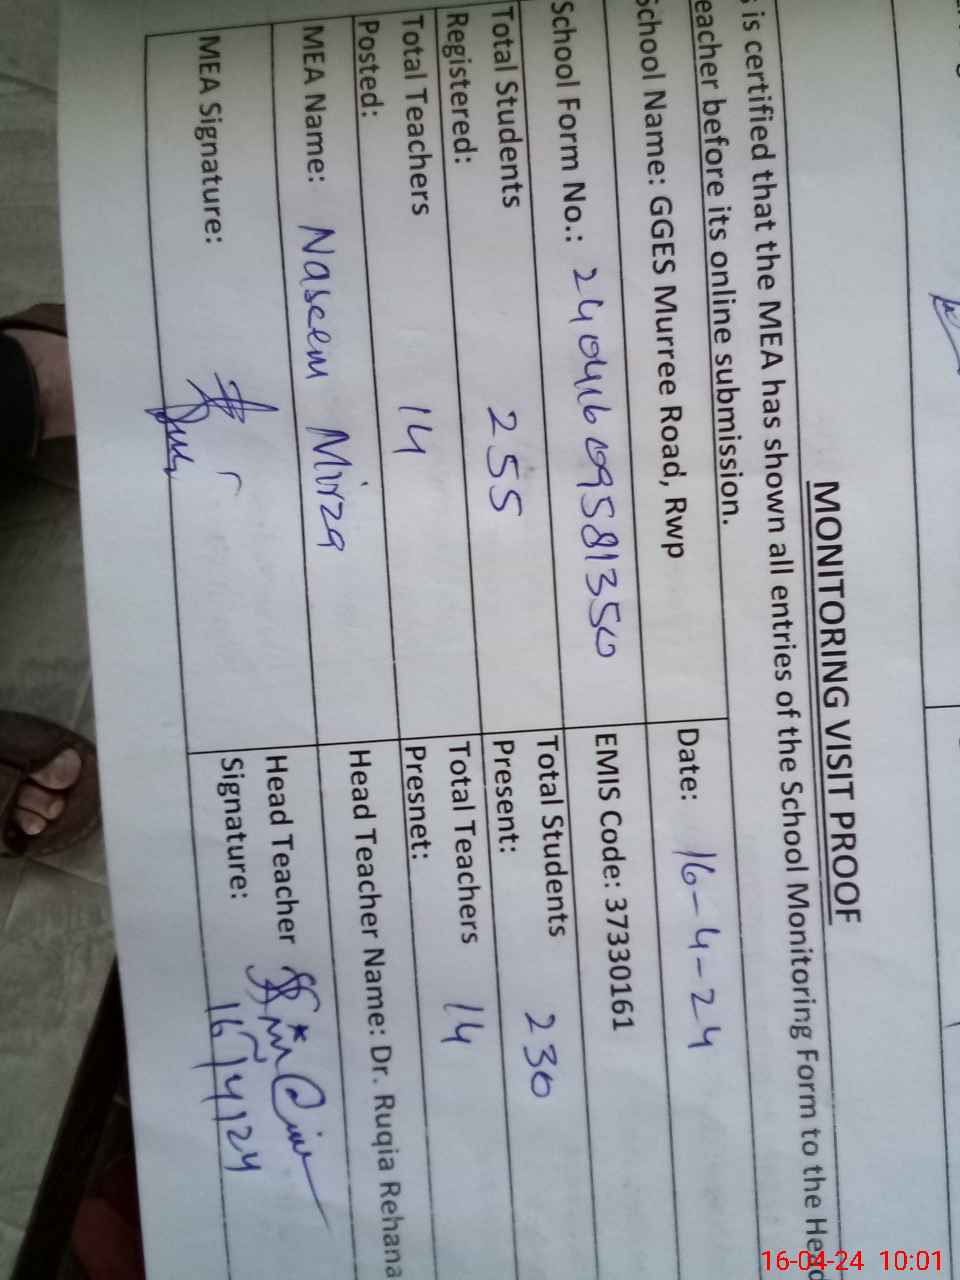 MONITORING VISIT PROOF
is certified that the MEA has shown all entries of the School Monitoring Form to the Head
eacher before its online submission.
School Name: GGES Murree Road, Rwp
Date: 16-4-24
School Form No.: 24041609581350
EMIS Code: 37330161
Total Students
Registered: 255
Total Students
Present: 230
Total Teachers
Posted: 14
Total Teachers
Presnet: 14
MEA Name: Naseem Mirza
Head Teacher Name: Dr. Ruqia Rehana
MEA Signature:
Head Teacher
Signature:
16/4/24
16-04-24 10:01